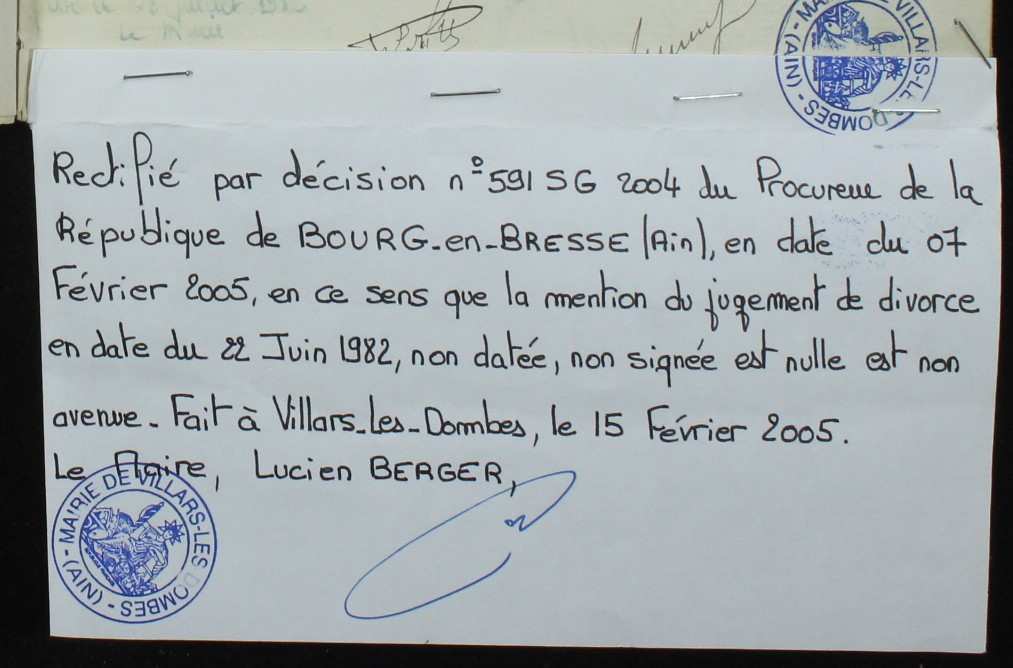 le Maire
MAIRIE DE VILLARS-LES DOMBES - (AIN) -
Rectifié par décision n° 591 SG 2004 du Procureue de la
République de BOURG-en-BRESSE (Ain), en date du 07
Février 2005, en ce sens que la mention du jugement de divorce
en date du 22 Juin 1982, non datée, non signée est nulle est non
avenue. Fait à Villars-Les-Dombes, le 15 Février 2005.
Le Maire, Lucien BERGER,
MAIRIE DE VILLARS-LES DOMBES - (AIN) -